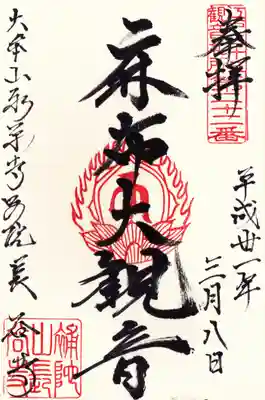 奉拝
二十二番
平成丗一年
三月八日
麻布大観音
大本山永平寺別院長谷寺
補陀
山長
谷寺